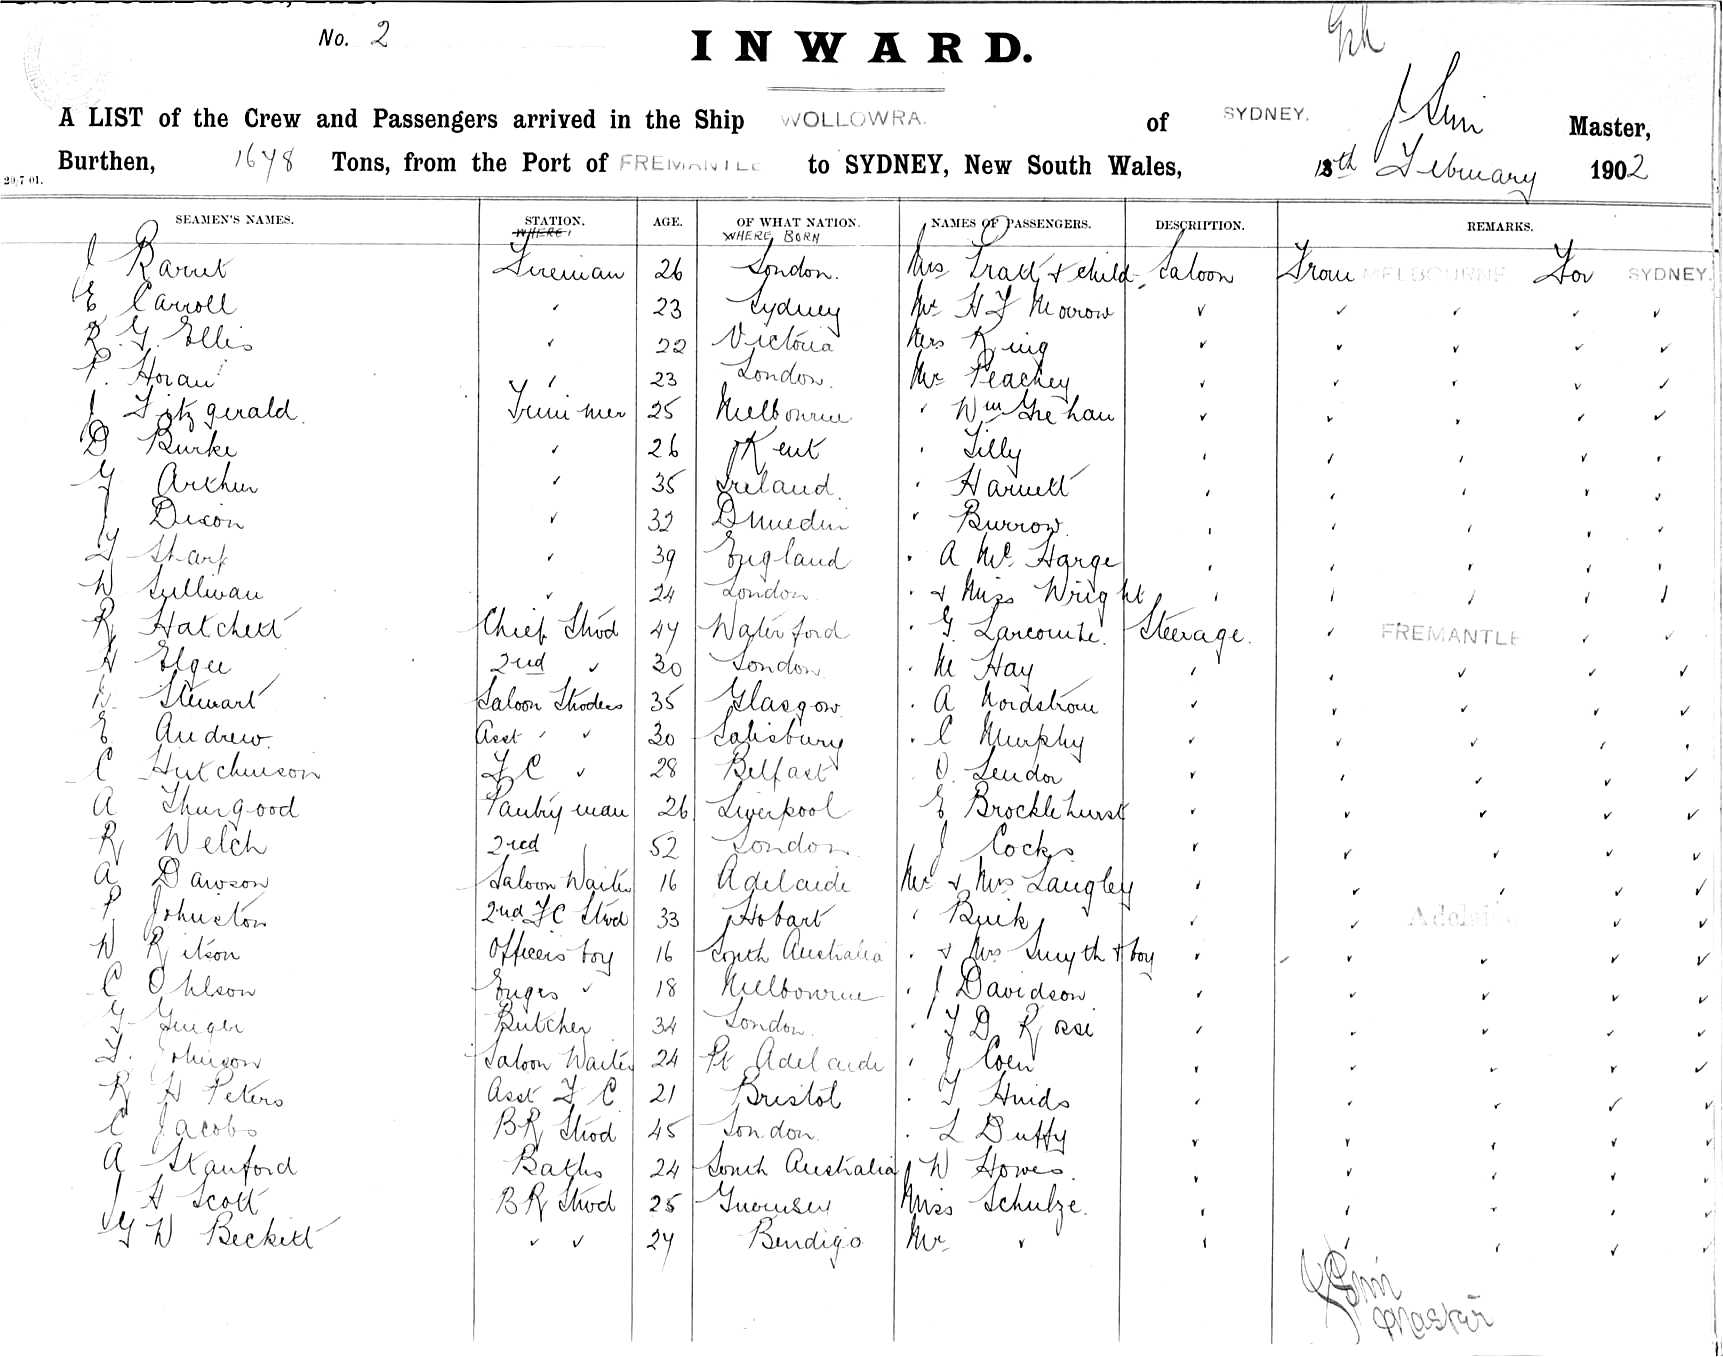 No. 2
INWARD.
A LIST of the Crew and Passengers arrived in the Ship WOLLOWRA. of SYDNEY. Master,
Burthen, 1678 Tons, from the Port of FREMANTLE to SYDNEY, New South Wales, 13th February 1902
29/7/01.
SEAMEN'S NAMES. STATION. AGE. OF WHAT NATION. NAMES OF PASSENGERS. DESCRIPTION. REMARKS.
WHERE WHERE BORN
J Fireman 26 London. Mrs Pratt & child Saloon From MELBOURNE For SYDNEY.
E Carroll " 23 Sydney Mr H F Morrow " " " " "
R. G. Ellis " 22 Victoria Mrs King " " " " "
P. Horan " 23 London. Mr Peachey " " " " "
J Fitzgerald. Trimmer 25 Melbourne " Wm Grehan " " " " "
D Burke " 26 Kent " Tilly " " " " "
G Arthur " 35 Ireland. " Harnett " " " " "
J Dixon " 32 Dunedin " Burrow. " " " " "
T Sharp " 39 England " A Mc Harge " " " " "
W Sullivan " 24 London. " & Miss Wright " " " " "
R Hatchett Chief Stwd 47 Waterford " G. Larcombe. Steerage. " FREMANTLE " "
H Elgee 2nd " 30 London. " M Hay " " " " "
Stewart Saloon Stwdess 35 Glasgow. " A Nordstrom " " " " "
E Andrew. Asst " " 30 Salisbury " C Murphy " " " " "
C Hutchinson F C " 28 Belfast O. Lendor " " " " "
A Thurgood Pantryman 26 Liverpool E Brocklehurst " " " " "
R Welch 2nd " 52 London. J Cocks " " " " "
A Dawson Saloon Waiter 16 Adelaide Mr & Mrs Langley " " " " "
P Johnston 2nd F C Stwd 33 Hobart " Buik " " Adelaide " "
W Ritson Officers boy 16 South Australia " & Mrs Smyth & boy " " " " "
C Ohlson Engrs " 18 Melbourne " J Davidson " " " " "
Butcher 34 London. " F D Rossi " " " " "
T. Johnson Saloon Waiter 24 Pt Adelaide " J Coen " " " " "
R H Peters Asst F C 21 Bristol " T Hinds " " " " "
C Jacobs BR Stwd 45 London. " L Duffy " " " " "
A Stanford Baths 24 South Australia " W Howes. " " " " "
J H Scott BR Stwd 25 Guernsey Miss Schulze. " " " " "
G W Beckett " " 27 Bendigo Mr " " " " " "
Master